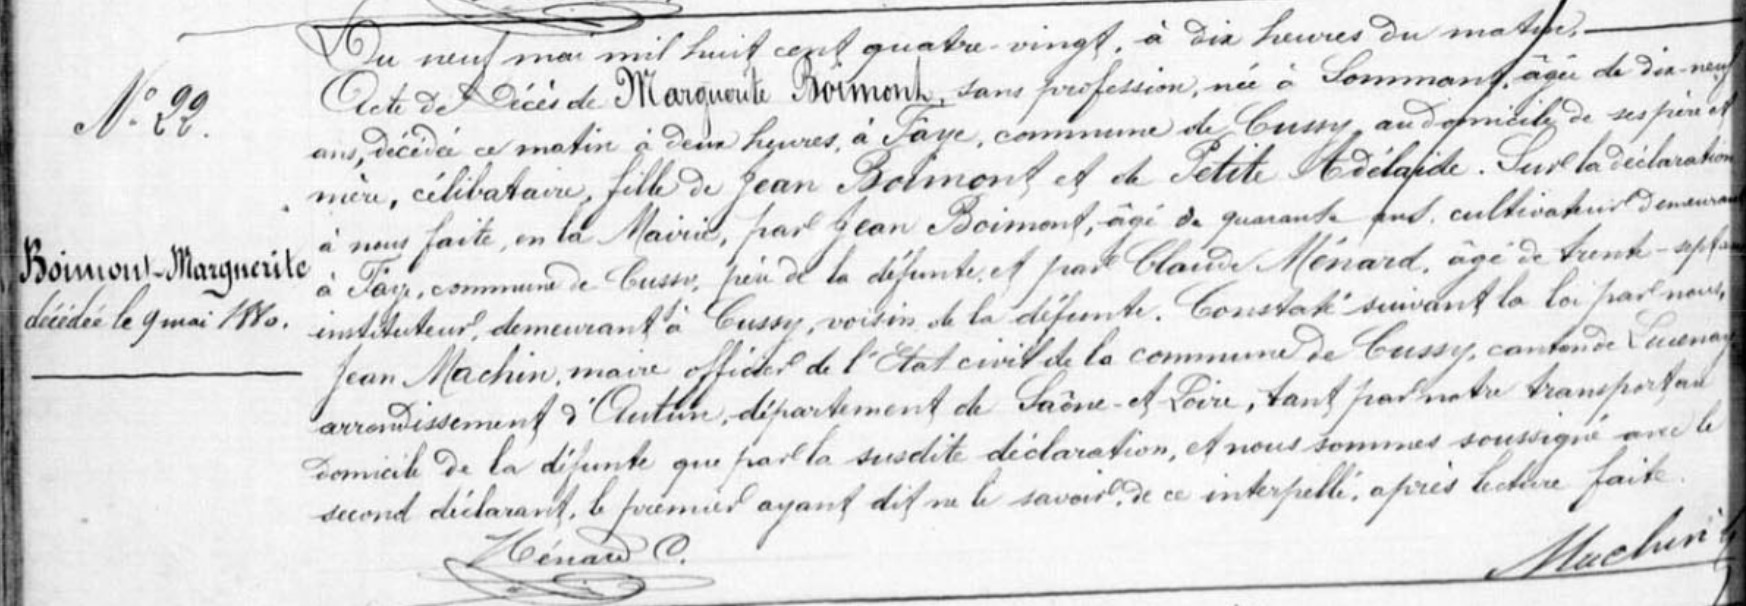 N° 22.
Boimont-Marguerite
décédée le 9 mai 1880.
Du neuf mai mil huit cent quatre-vingt, à dix heures du matin.
Acte de Décès de Marguerite Boimont, sans profession, née à Sommant, âgée de dix-neuf
ans, décédée ce matin à deux heures, à Faye, commune de Cussy, au domicile de ses père et
mère, célibataire, fille de Jean Boimont et de Petite Adélaïde. Sur la déclaration
à nous faite, en la Mairie, par Jean Boimont, âgé de quarante ans, cultivateur demeurant
à Faye, commune de Cussy, père de la défunte, et par Claude Ménard, âgé de trente-sept ans
instituteur, demeurant à Cussy, voisin de la défunte. Constaté suivant la loi par nous,
Jean Machin, maire officier de l'Etat civil de la commune de Cussy, canton de Lucenay
arrondissement d'Autun, département de Saône-et-Loire, tant par notre transport au
domicile de la défunte que par la susdite déclaration, et nous sommes soussigné avec le
second déclarant, le premier ayant dit ne le savoir, de ce interpellé, après lecture faite.
Ménard C.
Machin